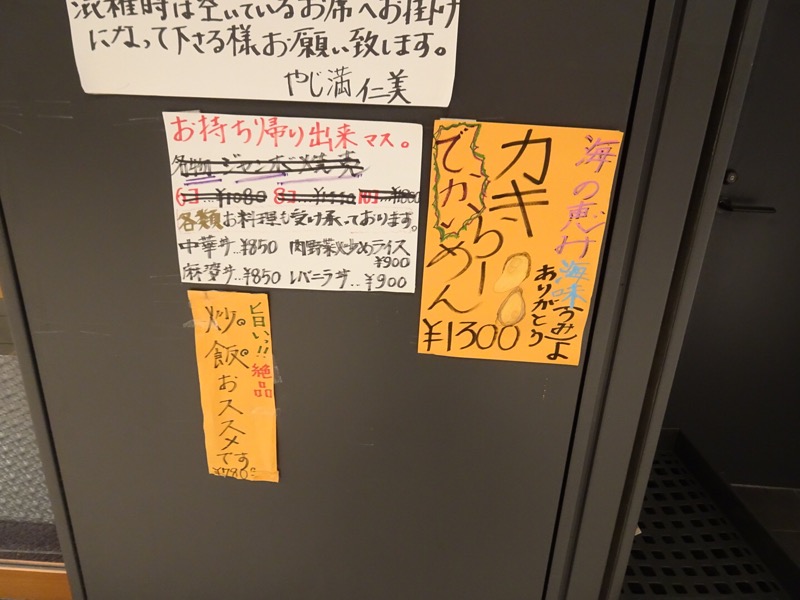 混雑時は空いているお席へお掛け
になって下さる様お願い致します。
やじ満 仁美
お持ち帰り出来マス。
名物 ジャンボ焼売
6コ…¥1080 8コ…¥1440 10コ…¥1800
各類お料理も受け承っております。
中華丼…¥850 肉野菜炒めライス
¥900
麻婆丼…¥850 レバニラ丼…¥900
海の恵み 海味(うみ)よ
ありがとう
カキ
でかい
らーめん
¥1300
旨いっ!! 絶品
炒飯
おススメです
¥780